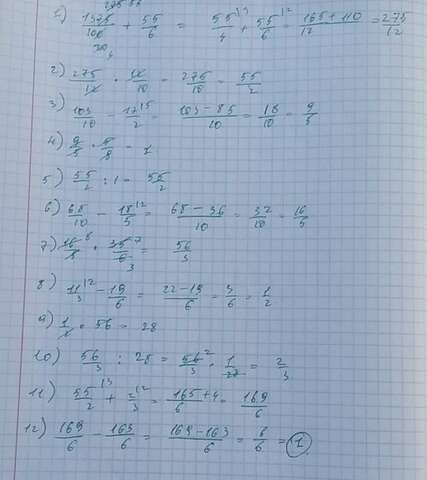 1) 1375/100 + 55/6 = 55/4 + 55/6 = 165 + 110/12 = 275/12
2) 275/12 · 12/10 = 275/10 = 55/2
3) 103/10 - 17/2 = 103 - 85/10 = 18/10 = 9/5
4) 9/5 · 5/9 = 1
5) 55/2 : 1 = 55/2
6) 68/10 - 18/5 = 68 - 36/10 = 32/10 = 16/5
7) 16/5 · 35/6 = 56/3
8) 11/3 - 19/6 = 22 - 19/6 = 3/6 = 1/2
9) 1/2 · 56 = 28
10) 56/3 : 28 = 56/3 · 1/28 = 2/3
11) 55/2 + 2/3 = 165 + 4/6 = 169/6
12) 169/6 - 163/6 = 169 - 163/6 = 6/6 = 1